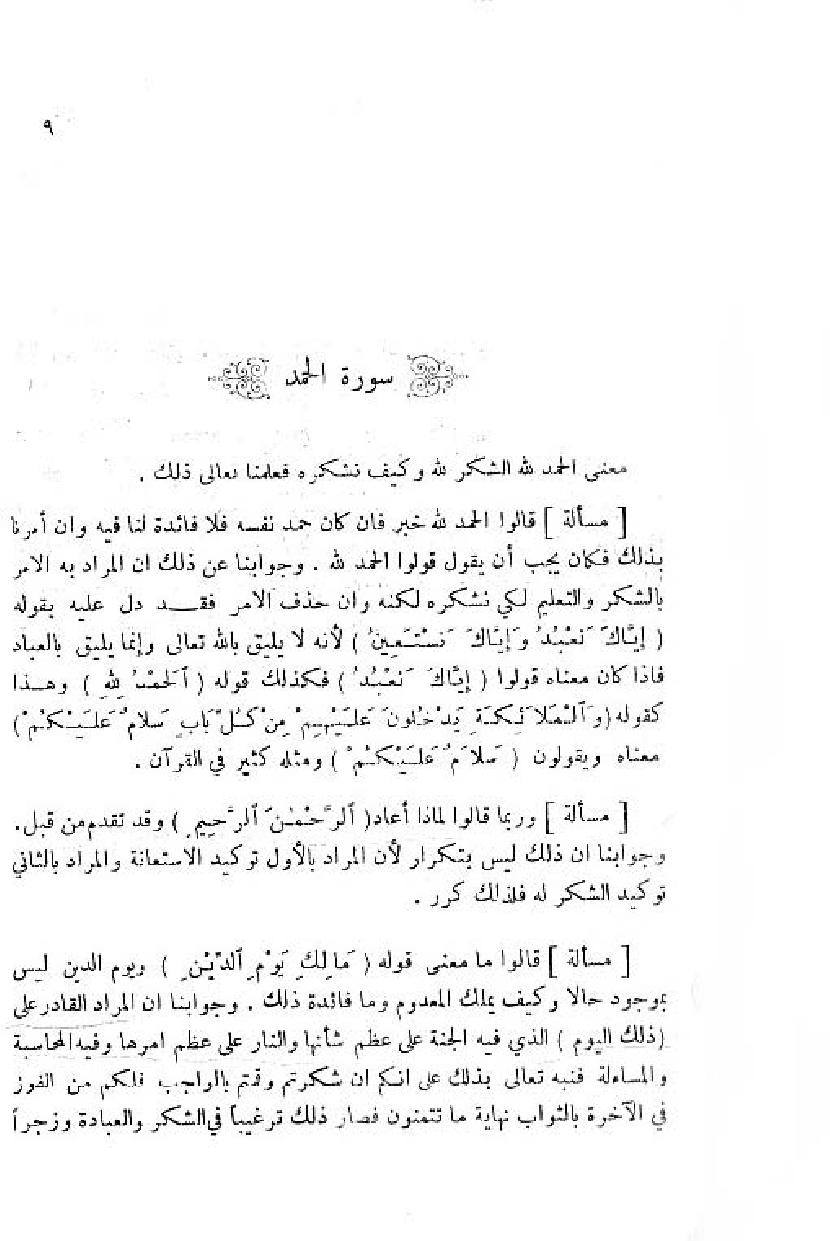 ٩
سورة الحمد
معنى الحمد لله الشكر لله وكيف نشكره فعلمنا تعالى ذلك .
[ مسألة ] قالوا الحمد لله خبر فان كان حمد نفسه فلا فائدة لنا فيه وان أمرنا
بذلك فكان يجب أن يقول قولوا الحمد لله . وجوابنا عن ذلك ان المراد به الامر
بالشكر والتعليم لكي نشكره لكنه وان حذف الامر فقـــد دل عليه بقوله
( إِيَّاكَ نَعْبُدُ وَإِيَّاكَ نَسْتَعِينُ ) لأنه لا يليق بالله تعالى وإنما يليق بالعباد
فاذا كان معناه قولوا ( إِيَّاكَ نَعْبُدُ ) فكذلك قوله ( اَلْحَمْدُ لِلهِ ) وهــذا
كقوله ( وَٱلْمَلَائِكَةِ يَدْخُلُونَ عَلَيْهِمْ مِنْ كُلِّ بَابٍ سَلَامٌ عَلَيْكُمْ )
معناه ويقولون ( سَلَامٌ عَلَيْكُمْ ) ومثله كثير في القرآن .
[ مسألة ] وربما قالوا لماذا أعاد ( ٱلرَّحْمٰنَ ٱلرَّحِيمِ ) وقد تقدم من قبل .
وجوابنا ان ذلك ليس بتكرار لأن المراد بالأول توكيد الاستعانة والمراد بالثاني
توكيد الشكر له فلذلك كرر .
[ مسألة ] قالوا ما معنى قوله ( مَالِكِ يَوْمِ ٱلدِّيْنِ ) ويوم الدين ليس
بموجود حالا وكيف يملك المعدوم وما فائدة ذلك . وجوابنا ان المراد القادر على
(ذلك اليوم ) الذي فيه الجنة على عظم شأنها والنار على عظم امرها وفيه المحاسبة
والمساءلة فنبه تعالى بذلك على انكم ان شكرتم وقمتم بالواجب فلكم من الفوز
في الآخرة بالثواب نهاية ما تتمنون فصار ذلك ترغيباً في الشكر والعبادة وزجراً